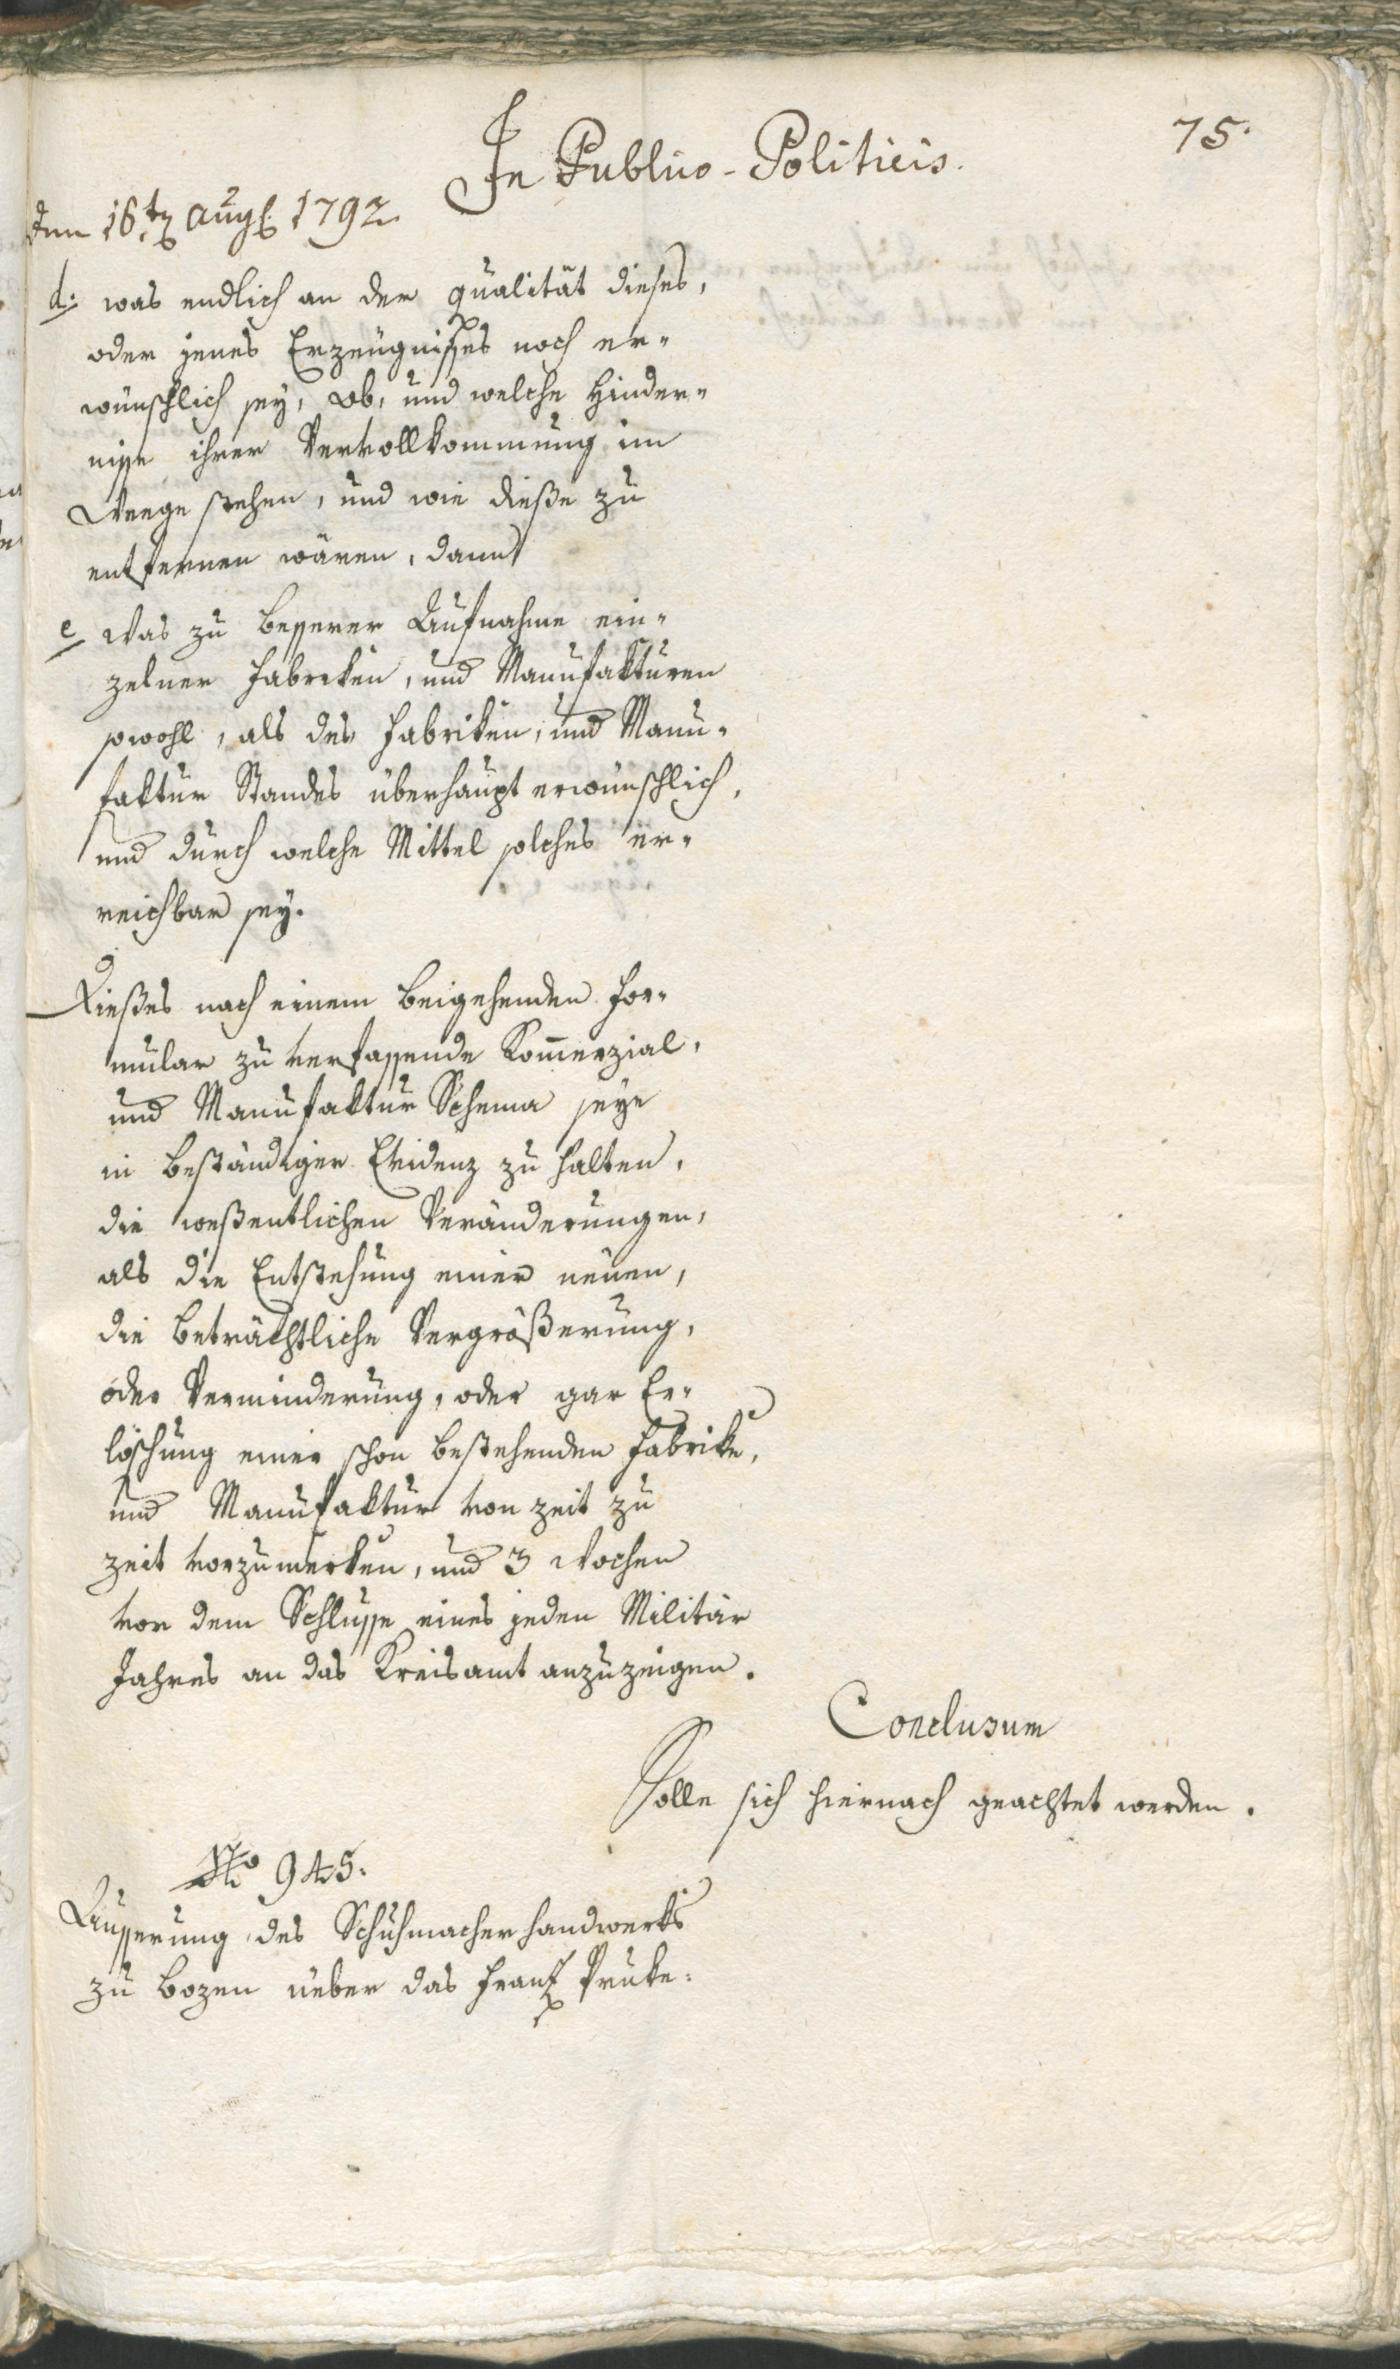 In Publico-Politicis.
75.
den 16ten Augst 1792
d: was endlich an der qualität dieses,
oder jenes Erzeugnisses noch er-
wünschlich sey, ob, und welche Hinder-
nisse ihrer Vervollkommung im
Weege stehen, und wie dieße zu
entfernen wären, dann
e Was zu besserer Aufnahme ein-
zelner Fabricken, und Manufakturen
sowohl, als des Fabriken, und Manu-
faktur Standes überhaupt erwünschlich,
und durch welche Mittel solches er-
reichbar sey.
Dießes nach einem beigehenden For-
mular zu verfassende Kom̄erzial,
und Manufaktur Schema seye
in beständiger Evidenz zu halten,
die weßentlichen Veränderungen,
als die Entstehung einer neuen,
die beträchtliche Vergrößerung,
oder Verminderung, oder gar Er-
löschung einer schon bestehenden Fabrike,
und Manufaktur von zeit zu
zeit vorzumerken, und 3 Wochen
vor dem Schlusse eines jeden Militär
Jahres an das Kreisamt anzuzeigen.
Conclusum
Solle sich hiernach geachtet werden.
No 945.
Äusserung des Schuhmacherhandwerks
zu Bozen ueber das Franz Pruke-